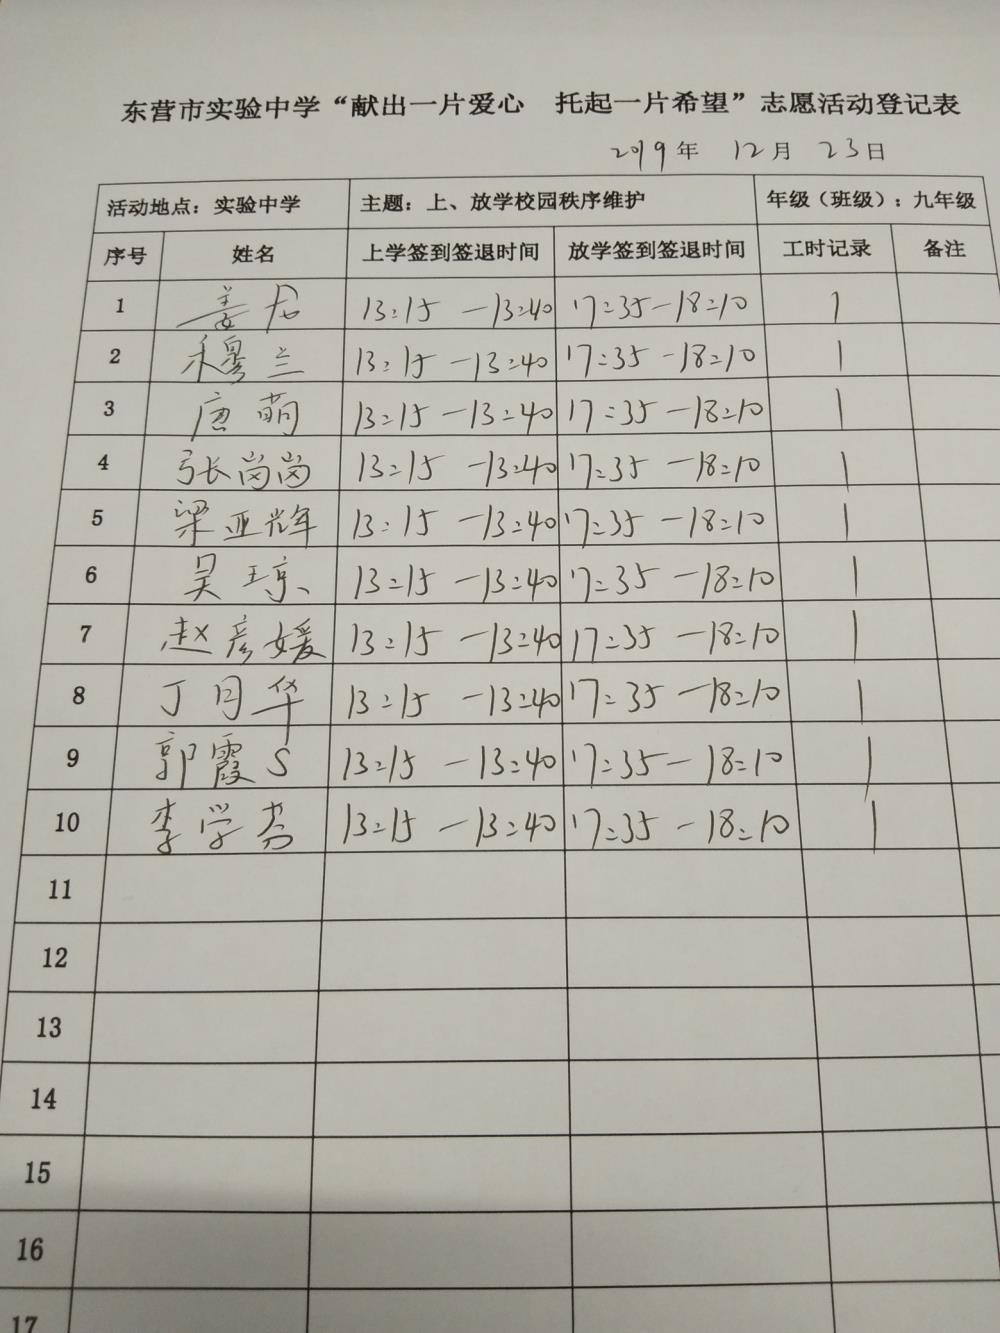 东营市实验中学“献出一片爱心 托起一片希望”志愿活动登记表
2019年 12月 23日
活动地点：实验中学 主题：上、放学校园秩序维护 年级（班级）：九年级
序号 姓名 上学签到签退时间 放学签到签退时间 工时记录 备注
1 姜 13:15 —13:40 17:35—18:10 1
2 穆兰 13:15 —13:40 17:35 —18:10 1
3 唐萌 13:15 —13:40 17:35 —18:10 1
4 张岗岗 13:15 —13:40 17:35 —18:10 1
5 梁亚辉 13:15 —13:40 17:35 —18:10 1
6 吴琼 13:15 —13:40 17:35 —18:10 1
7 赵彦媛 13:15 —13:40 17:35 —18:10 1
8 丁月华 13:15 —13:40 17:35 —18:10 1
9 郭霞S 13:15 —13:40 17:35— 18:10 1
10 李学芬 13:15 —13:40 17:35 —18:10 1
11
12
13
14
15
16
17